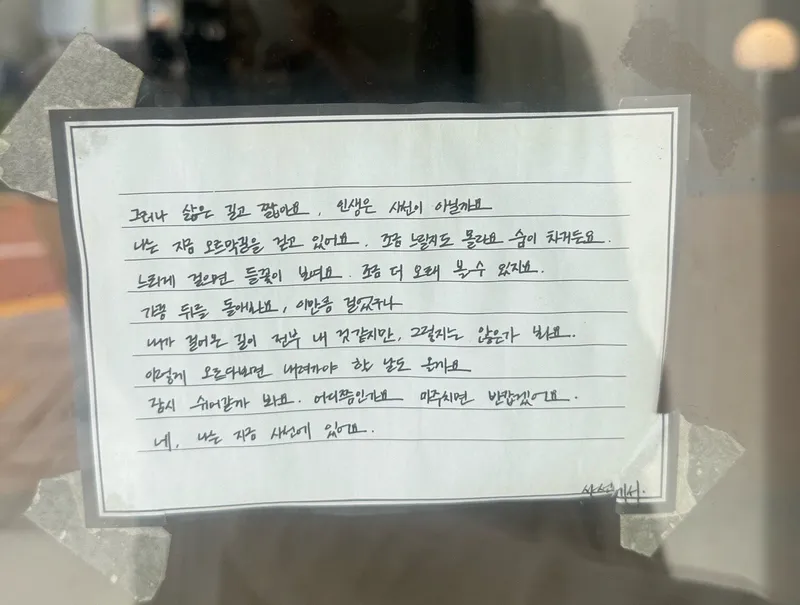 그러나 삶은 길고 짧아요, 인생은 사선이 아닐까요
나는 지금 오르막길을 걷고 있어요. 조금 느릴지도 몰라요 숨이 차거든요.
느리게 걸으면 들꽃이 보여요. 조금 더 오래 볼 수 있지요.
가끔 뒤를 돌아봐요, 이만큼 걸었구나
내가 걸어온 길이 전부 내 것 같지만, 그렇지는 않은가 봐요.
이렇게 오르다보면 내려가야 할 날도 올까요
잠시 쉬어갈까 봐요. 어디쯤인가요 마주치면 반갑겠어요.
네, 나는 지금 사선에 있어요.
사선에서.